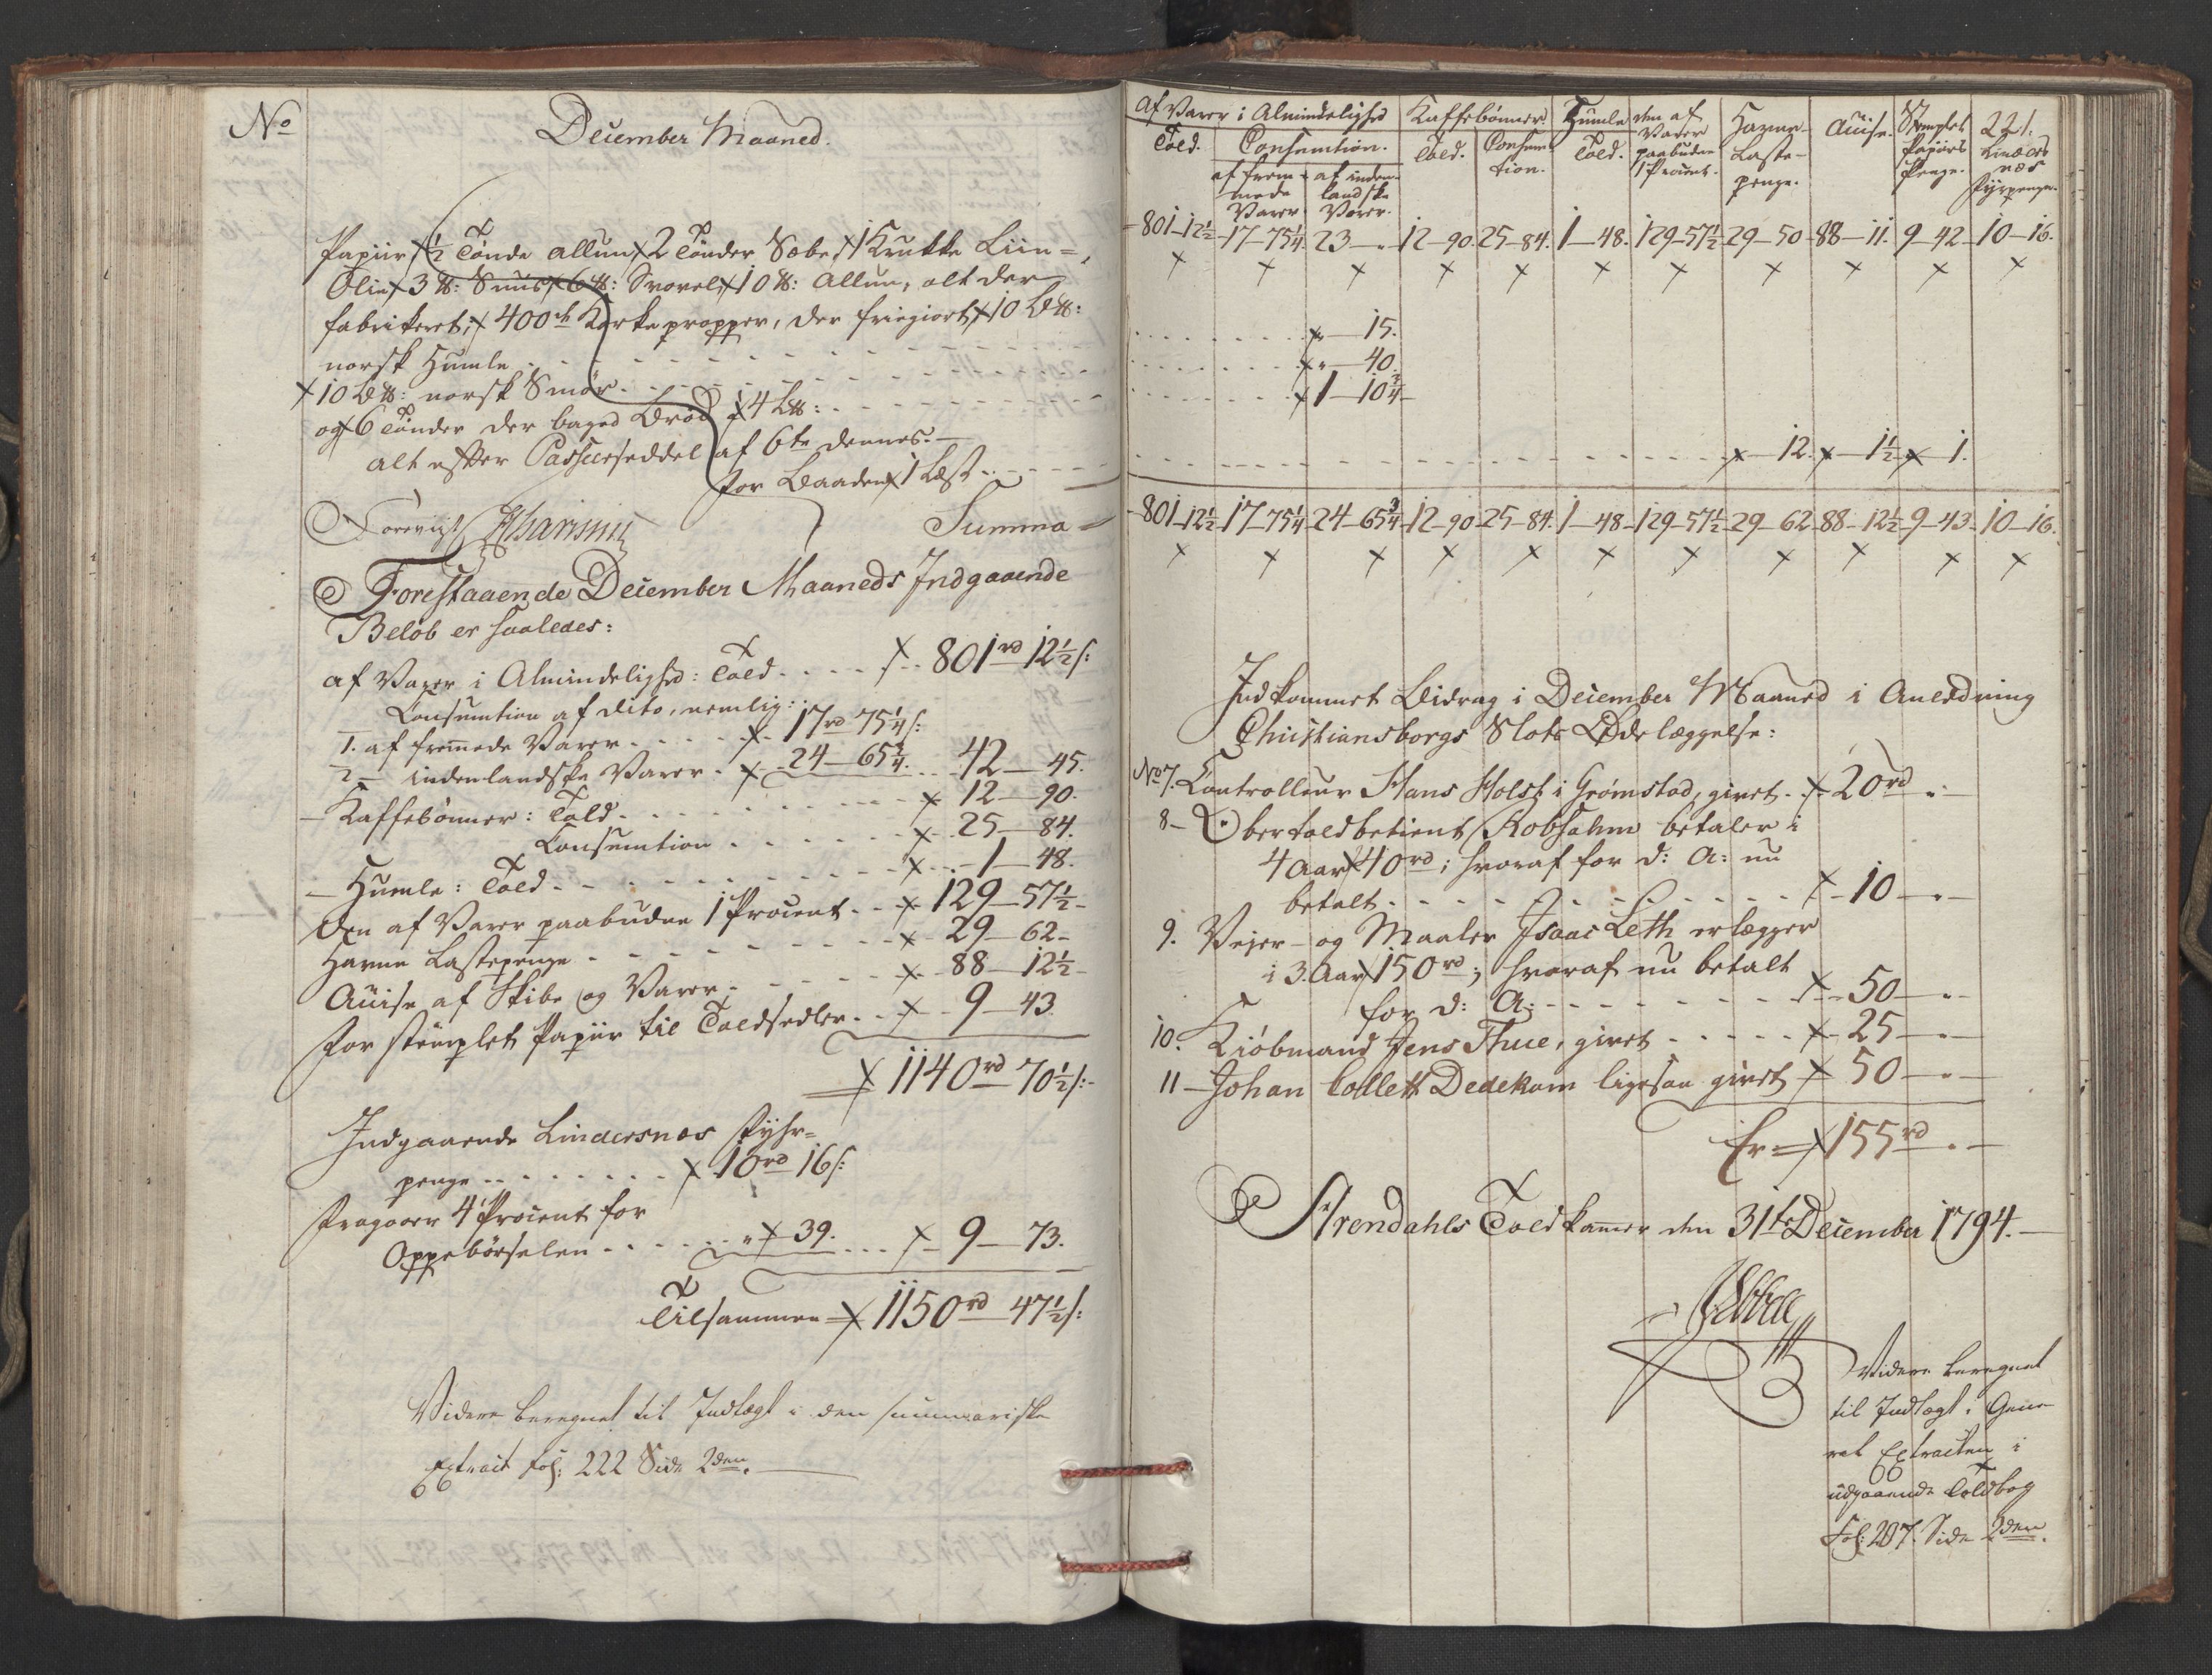 No
December Maaned.
Papiir, ½ Tønde Allun, 2 Tønder Sæbe, 1 Krukke Liin=
Olie, 3 ℔: Snus, 6 ℔: Svovel, 10 ℔: Allun, alt der
fabrikeret, 400 Korkepropper, der friegiort, 10 B℔:
norsk Humle
10 B℔: norsk Smør
og 6 Tønder der baged Brød, 4 L℔:
alt efter Passeerseddel af 6te dennes.
for Baaden 1 Læst
Summa
Forestaaende December Maaneds Indgaaende
Beløb er saaledes:
af Varer i Almindelighed: Told 801 rd 12½ s:
Consumtion af dito, nemlig:
1. af fremmede Varer 17 rd 75¼ s:
2 – indenlandske Varer 24 – 65¾ . 42 – 45.
– Kaffebønner: Told 12 – 90.
Consumtion 25 – 84.
– Humle: Told 1 – 48.
den af Varer paabudne 1 Procent 129 – 57½
Havne Lastepenge 29 – 62
Accise af Skibe og Varer 88 – 12½
for stemplet Papiir til Toldsedler 9 – 43.
1140 rd 70½ s:
Indgaaende Lindersnæs Fyhr=
penge 10 rd 16 s:
Fragaaer 4 Procent for
Oppebørselen " 39. 9 – 73.
Tilsammen 1150 rd 47½ s:
Videre beregnet til Indtægt i den summariske
Extract fol: 222 Side 2den.
Af Varer i Almindelighed Kaffebønner. Humle den af Varer paabudne 1 Procent. Havne-Laste-penge. Accise. Stemplet Papiirs Penge. 221. Lindersnæs Fyrpenge.
Told. Consumtion. Told. Consumtion. Told.
af fremmede Varer. af indenlandske Varer.
801–12½ 17–75¼ 23–" 12–90. 25–84. 1–48. 129–57½ 29–50 88–11. 9–42 10–16.
" – 15.
" – 40.
1 – 10¾
12. 1½ 1.
801–12½ 17–75¼ 24–65¾ 12–90 25–84. 1–48 129–57½ 29–62 88–12½ 9–43. 10–16.
Indkommet Bidrag i December Maaned i Anledning
Christiansborgs Slots Ødelæggelse:
No 7. Controlleur Hans Holst i Grømstad, givet 20 rd "
8 – Overtoldbetient Robsahm betaler i
4 Aar 40 rd; hvoraf for d: A: nu
betalt 10 – "
9. Vejer- og Maaler Isaac Leth erlægger
i 3 Aar 150 rd; hvoraf nu betalt
for d: A: 50 – "
10. Kiøbmand Jens Thue, givet 25 – "
11 – Johan Collett Dedekam ligesaa givet 50 – "
Er 155 rd "
Arendahls Toldkamer den 31te December 1794.
Videre beregnet
til Indtægt i Gene
ral Extracten i
udgaaende Toldbog
Fol: 207. Side 2den.